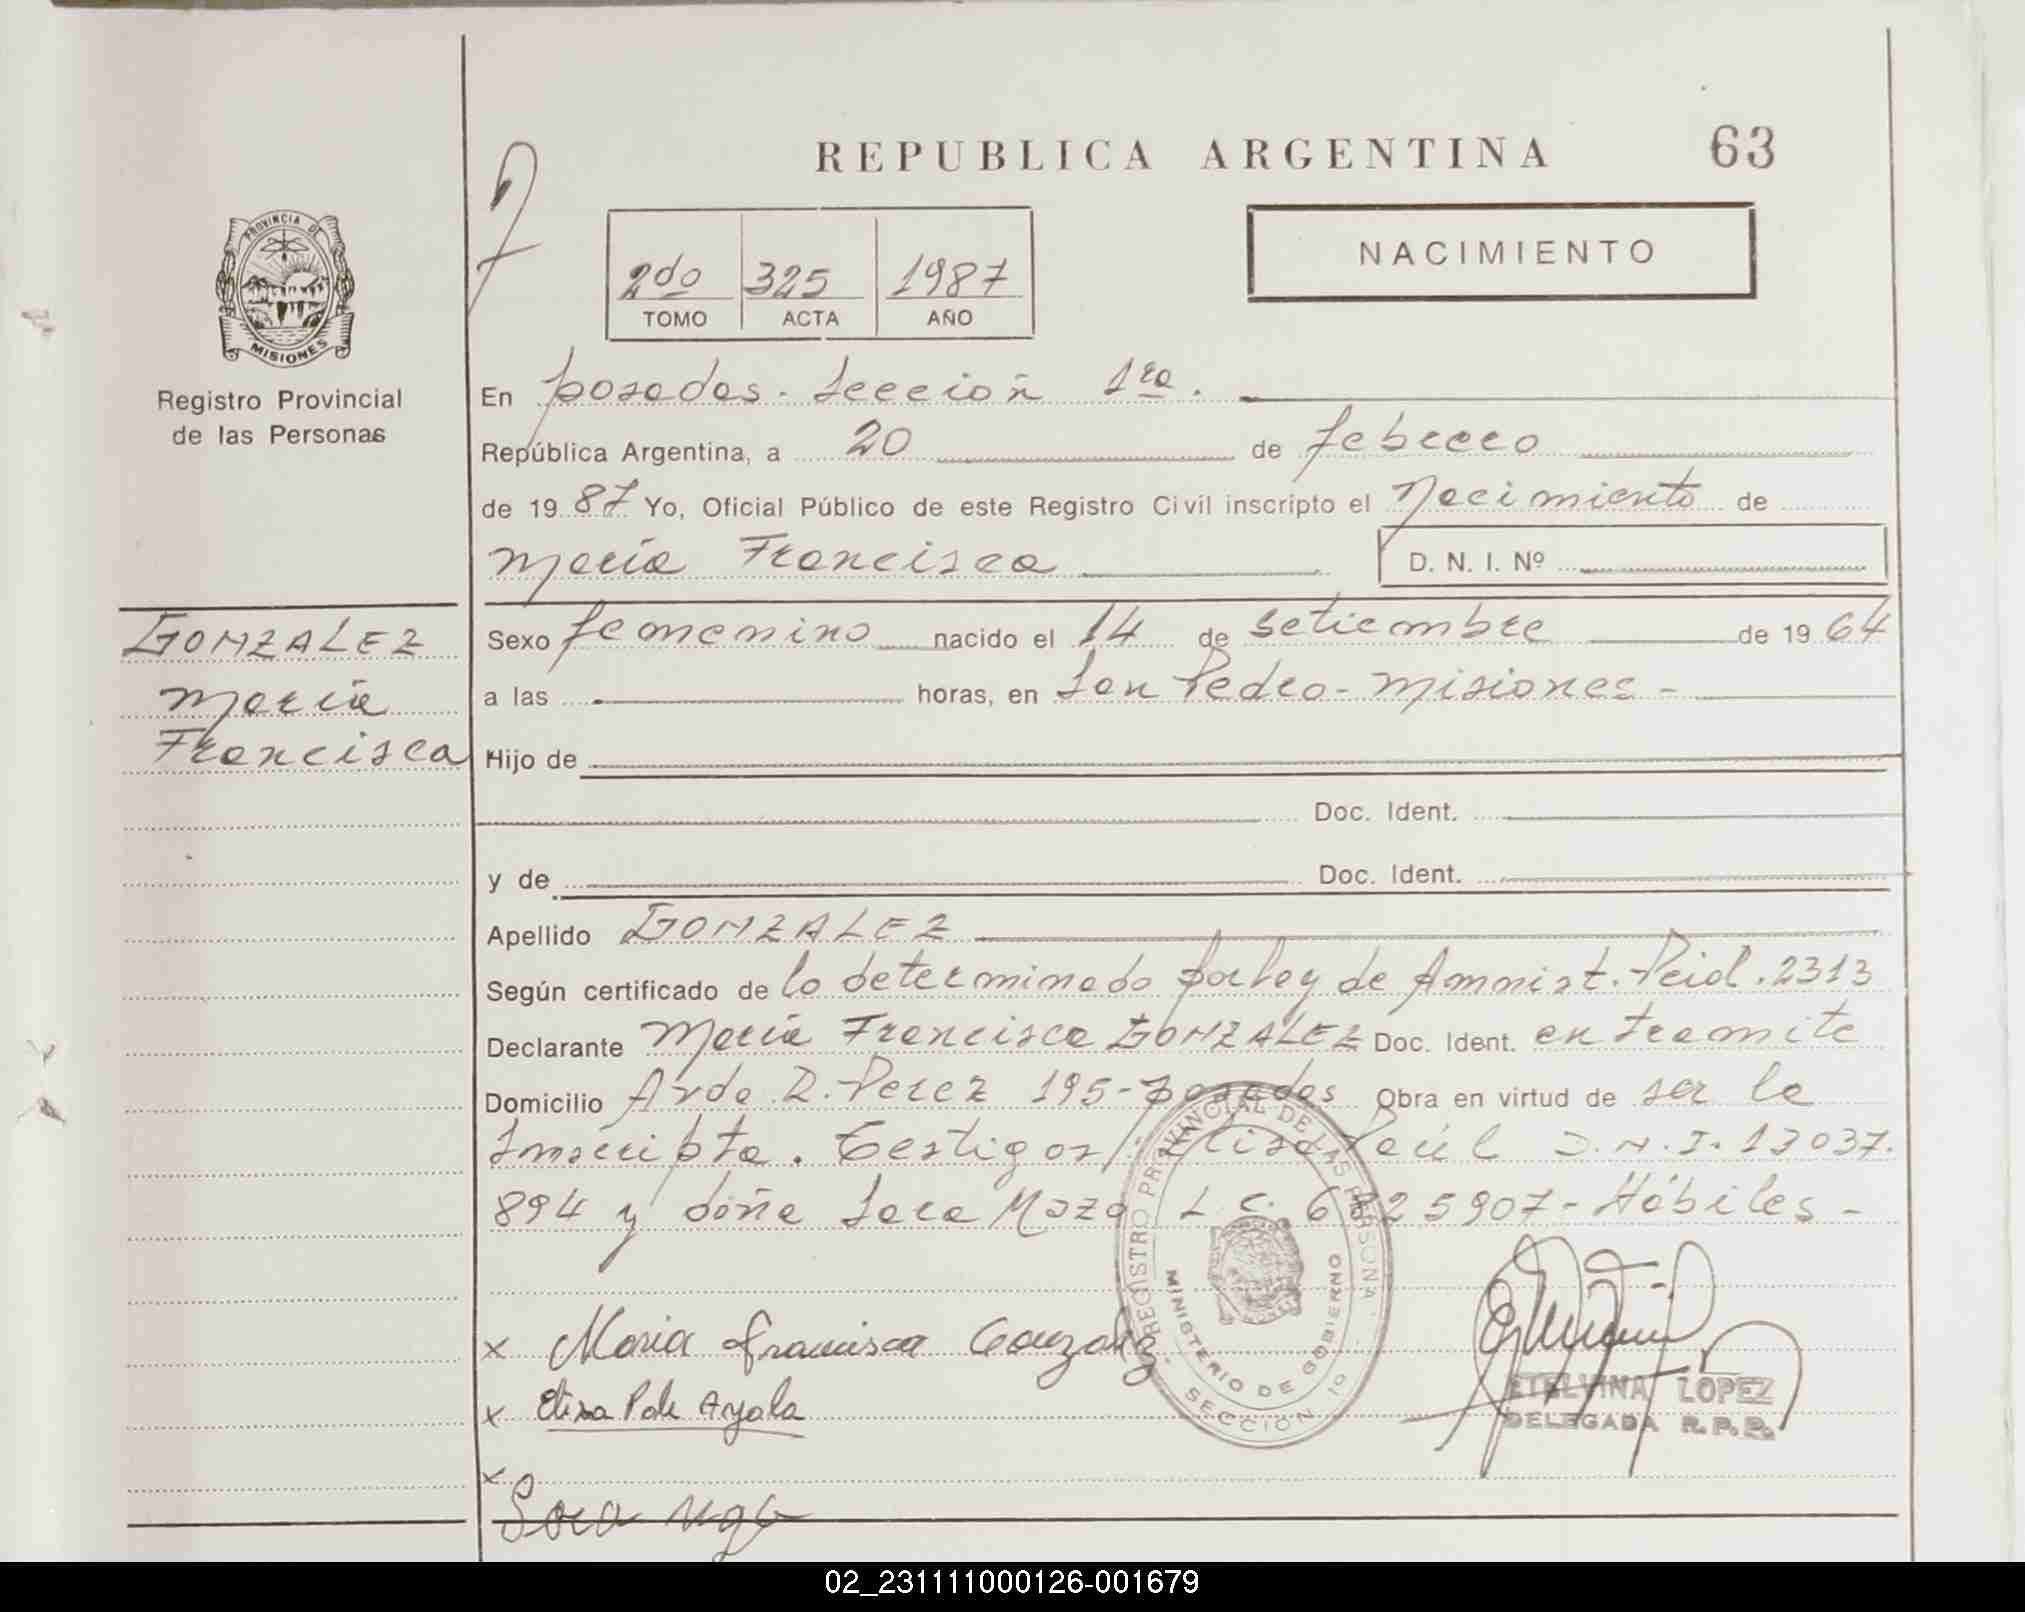 REPUBLICA ARGENTINA
63
PROVINCIA DE
MISIONES
Registro Provincial
de las Personas
2do 325 1987
TOMO ACTA AÑO
NACIMIENTO
En posadas. Sección 1ra.
República Argentina, a 20 de febrero
de 1987 Yo, Oficial Público de este Registro Civil inscripto el Nacimiento de
María Francisca
D. N. I. Nº
GONZALEZ
María
Francisca
Sexo femenino nacido el 14 de setiembre de 1964
a las horas, en San Pedro - Misiones -
Hijo de
Doc. Ident.
y de Doc. Ident.
Apellido GONZALEZ
Según certificado de lo determinado por ley de Amnist. 2313
Declarante María Francisca GONZALEZ Doc. Ident. en tramite
Domicilio Avda R. Perez 195 - Posadas Obra en virtud de ser la
Inscripta. Testigos: Elisa D.N.I. 13037.
894 y doña Sara L.C. 6825907 - Hábiles -
x Maria Francisca Gonzalez
x Elisa P de Ayala
x
Sara
REGISTRO PROVINCIAL DE LAS PERSONAS
MINISTERIO DE GOBIERNO
SECCIÓN 1ª
ETELVINA LOPEZ
DELEGADA R.P.P.
02_231111000126-001679